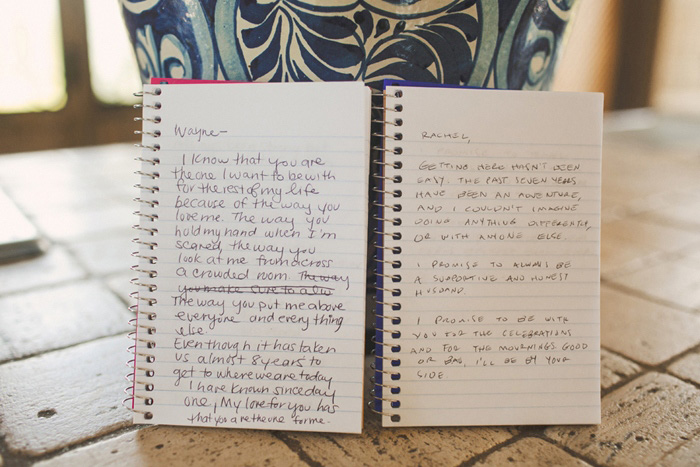 Wayne-
I know that you are
the one I want to be with
for the rest of my life
because of the way you
love me. The way you
hold my hand when I'm
scared, the way you
look at me from across
a crowded room. The way
you make love to
The way you put me above
everyone and every thing
else
Even though it has taken
us almost 8 years to
get to where we are today
I have known since day
one, My love for you has
that you are the one for me.
RACHEL,
GETTING HERE HASN'T BEEN
EASY. THE PAST SEVEN YEARS
HAVE BEEN AN ADVENTURE,
AND I COULDN'T IMAGINE
DOING ANYTHING DIFFERENTLY,
OR WITH ANYONE ELSE.
I PROMISE TO ALWAYS BE
A SUPPORTIVE AND HONEST
HUSBAND.
I PROMISE TO BE WITH
YOU FOR THE CELEBRATIONS
AND FOR THE MOURNINGS. GOOD
OR BAD, I'LL BE BY YOUR
SIDE.